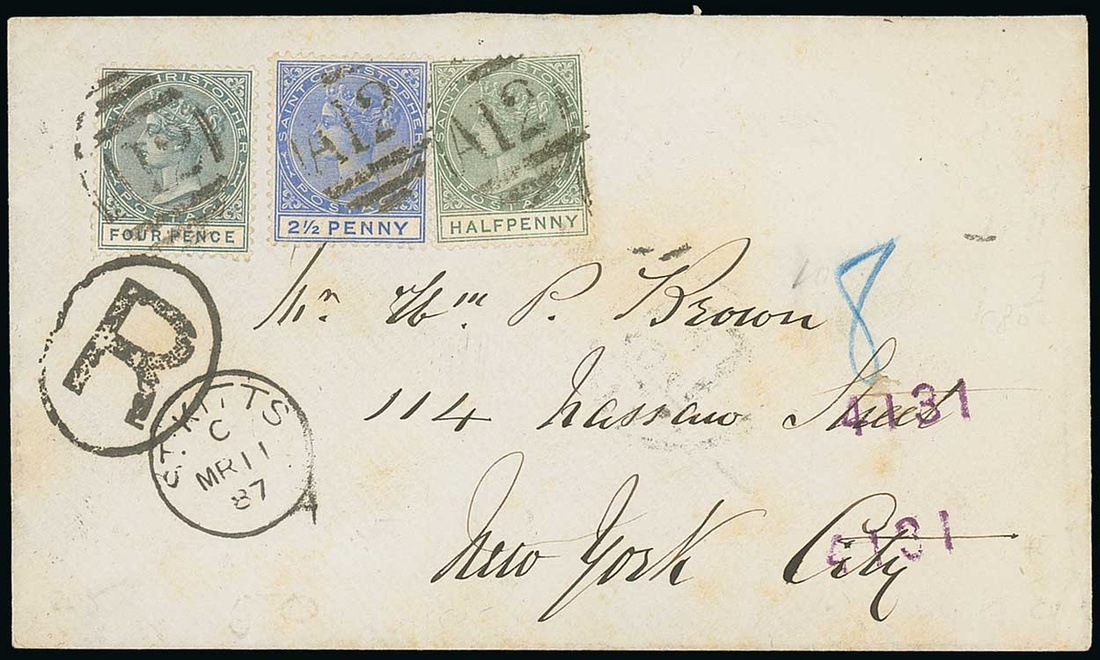 SAINT CHRISTOPHER
POSTAGE
FOUR PENCE
SAINT CHRISTOPHER
POSTAGE
2½ PENNY
SAINT CHRISTOPHER
POSTAGE
HALFPENNY
A12
A12
R
ST. KITTS
C
MR 11
87
Mr. Wm P. Brown
8
114 Nassau Street
4131
New York City
4131